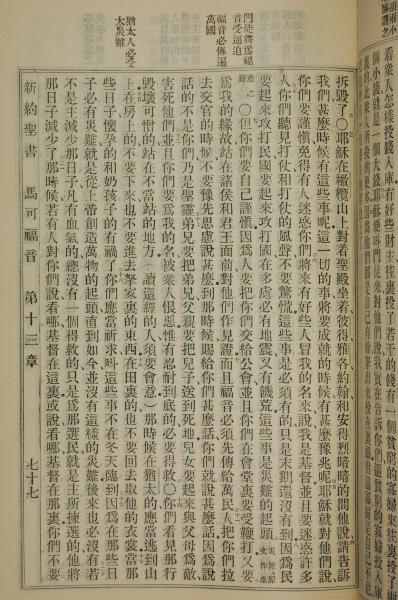 看衆人怎樣投錢入庫有好些財主往裏投了若干的錢有一個貧窮的寡婦來往裏投了
門徒將爲福
音受逼迫
福音必傳遍
萬國
猶太人必受
大災難
拆毀了〇耶穌在橄欖山上對着聖殿坐着彼得雅各約翰和安得烈暗暗的問他說請告訴
我們甚麼時候有這些事呢這一切的事將要成就的時候有甚麼豫兆呢耶穌就對他們說
你們要謹愼免得有人迷惑你們將來有好些人冒我的名來說我是基督並且要迷惑許多
人你們聽見打仗和打仗的風聲不要驚慌這些事是必須有的只是末期還沒有到因爲民
要起來攻打民國要起來攻打國在多處必有地震又有饑荒這些事是災難的起頭
〇但你們要自己謹愼因爲人要把你們交給公會並且你們在會堂裏要受鞭打又要
爲我的緣故站在諸侯和君王面前對他們作見證而且福音必須先傳給萬民人把你們拉
去交官的時候不要豫先思慮說甚麼到那時候賜給你們甚麼話你們就說甚麼話因爲說
話的不是你們乃是聖靈弟兄要把弟兄父親要把兒子送到死地兒女要起來與父母爲敵
害死他們並且你們要爲我的名被衆人恨惡惟有忍耐到底的必要得救〇你們看見那行
毀壞可憎的站在不當站的地方(讀這經的人須要會意)那時候在猶太的應當逃到山
上在房上的不要下來也不要進去拏家裏的東西在田裏的也不要回去取他的衣裳當那
些日子懷孕的和奶孩子的有禍了你們應當祈求呌這些事不在冬天臨到因爲在那些日
子必有災難就是從上帝創造萬物的起頭直到如今並沒有這樣的災難後來也必沒有若
不是主減少那日子凡有血氣的總沒有一個得救的只是爲那選民就是主所揀選的他將
那日子減少了那時候若有人對你們說看哪基督在這裏或說看哪基督在那裏你們不要
新約聖書 馬可福音 第十三章 七十七